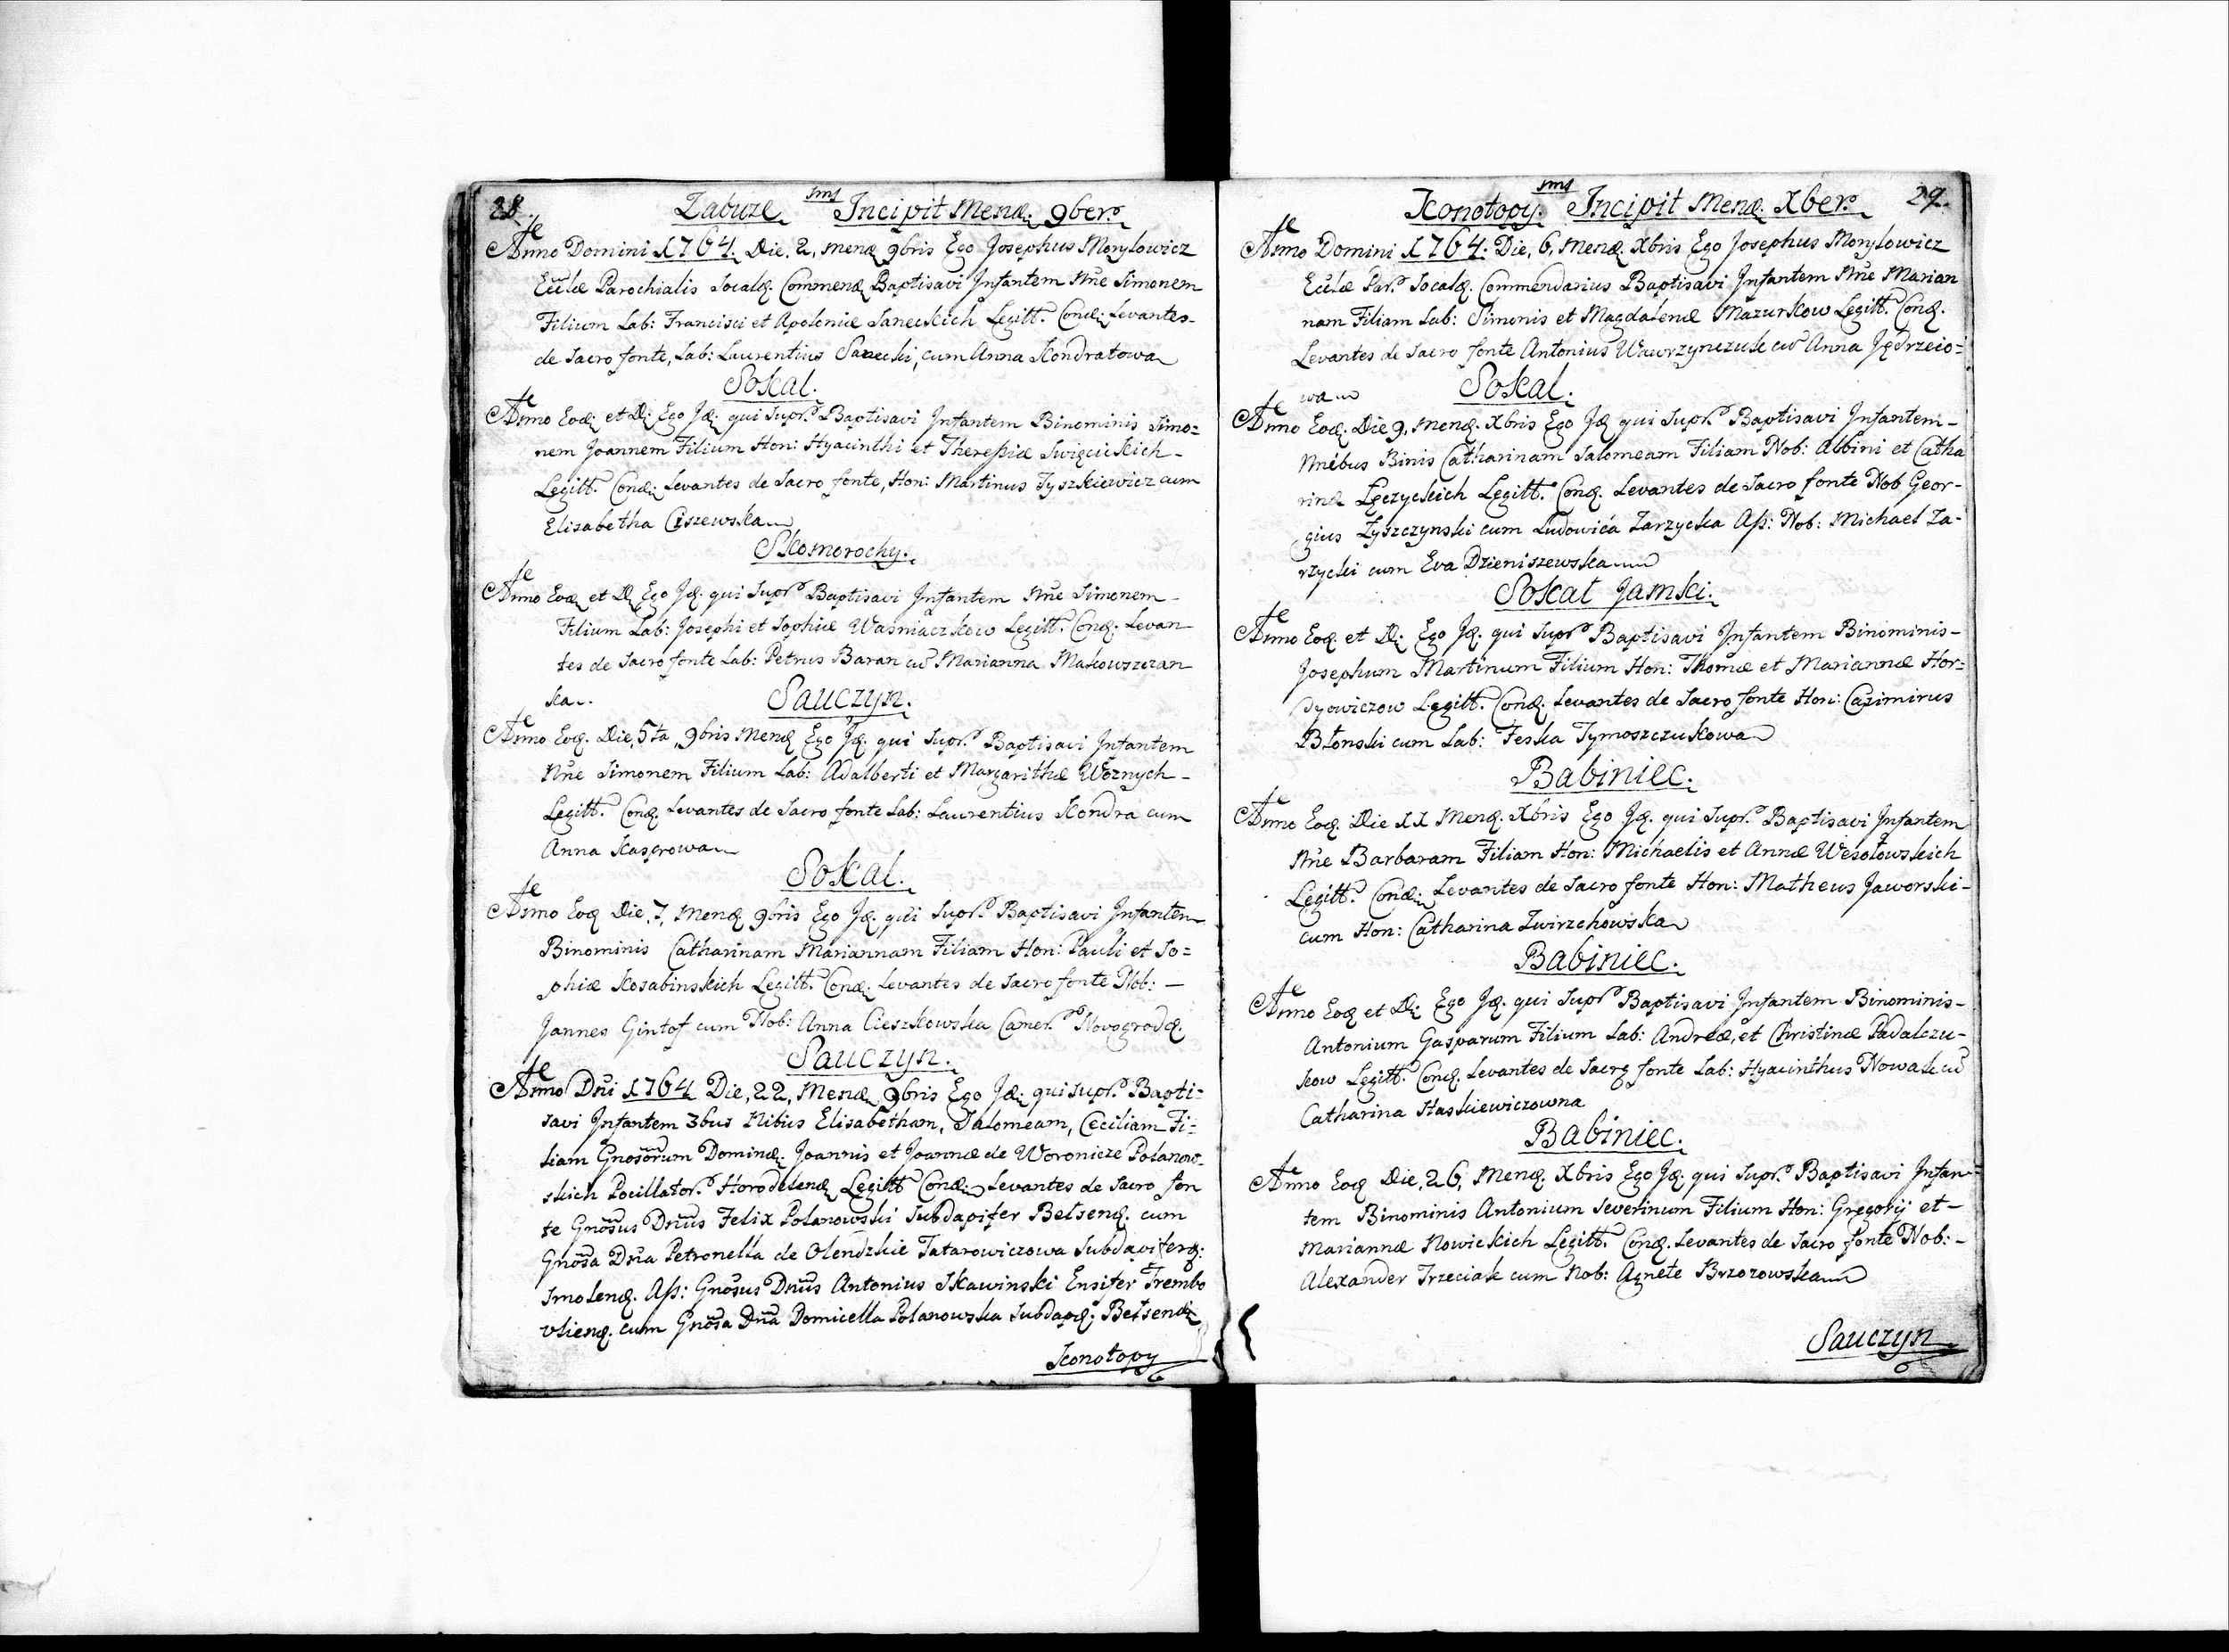 28. Zabuze sms Incipit Menæ. 9ber.
Anno Domini 1764. Die, 2, Menæ 9bris Ego Josephus Morylowicz
Eccłæ Parochialis Socalę. Commenę Baptisavi Infantem Nñe Simonem
Filium Lab: Francisci et Apoloniæ Saneckich Legitt. Conę: Levantes
de Sacro fonte, Lab: Laurentius Sanecki, cum Anna Kondratowa
Sokal.
Anno Eoę et D: Ego Ję. qui Supr. Baptisavi Infantem Binominis Simo=
nem Joannem Filium Hon: Hyacinthi et Theressiæ Swięcickich -
Legitt. Conę: Levantes de Sacro fonte, Hon: Martinus Tyszkiewicz cum
Elisabetha Ciszewska
Skomorochy.
Anno Eoę et D. Ego Ję. qui Supr Baptisavi Infantem Nñe Simonem -
Filium Lab: Josephi et Sophiæ Waśniaczkow Legitt. Conę. Levan
tes de Sacro fonte Lab: Petrus Baran cũ Marianna Makowszczan
ska.
Sauczyn.
Anno Eoę. Die, 5ta, 9bris Menę Ego Ję. qui Supr. Baptisavi Infantem
Nñe Simonem Filium Lab: Adalberti et Margarithæ Woznych -
Legitt. Conę. Levantes de Sacro fonte Lab: Laurentius Kondra cum
Anna Kasprowa
Sokal.
Anno Eoę Die, 7, Menę 9bris Ego Ję. qui Supr. Baptisavi Infantem
Binominis Catharinam Mariannam Filiam Hon: Pauli et So=
phiæ Kosabinskich Legitt. Conę. Levantes de Sacro fonte Nob: —
Jannes Gintof cum Nob: Anna Cieszkowska, Camer. Novogrodę.
Sauczyn.
Anno Dñi 1764 Die, 22, Menę 9bris Ego Ję. qui Supr. Bapti-
savi Infantem 3bus Nibus Elisabetham, Salomeam, Ceciliam Fi=
liam Gnosõrum Dominę. Joannis et Joannæ de Woronicze Polanow-
skich Pocillator. Horodelenę Legitt Conę. Levantes de Sacro fon
te Gnõsus Dñus Felix Polanowski Subdapifer Belsenę. cum
Gnõsa Dña Petronella de Olendzkie Tatarowiczowa Subdapiferę:
Smolenę. Aſs: Gnõsus Dñus Antonius Skawinski Ensifer Trembo
vlienę. cum Gnõsa Dña Domicella Polanowska Subdapę: Belsenę
Konotopy
Konotopy. sms Incipit Menę. Xber. 29.
Anno Domini 1764. Die, 6, Menę. Xbris Ego Josephus Morylowicz
Ecełæ Par. Socalę. Commendarius Baptisavi Infantem Nñe Marian
nam Filiam Lab: Simonis et Magdalenæ Mazurkow Legitt. Conę.
Levantes de Sacro fonte Antonius Wawrzynczuk cũ Anna Jędrzeio=
wa
Sokal.
Anno Eoę. Die 9, Menę. Xbris Ego Ję qui Supr. Baptisavi Infantem -
Nnĩbus Binis Catharinam Salomeam Filiam Nob: Albini et Catha
rinæ Łęczyckich Legitt. Conę. Levantes de Sacro fonte Nob Geor-
gius Zyszczynski cum Ludowica Zarzycka Aſs: Nob: Michael Za-
rzycki cum Eva Dzieniszewska
Sokal Jamski.
Anno Eoę et D: Ego Ję. qui Supr Baptisavi Infantem Binominis -
Josephum Martinum Filium Hon: Thomæ et Mariannæ Hor=
dyowiczow Legitt. Conę. Levantes de Sacro fonte Hon: Cazimirus
Błonski cum Lab: Feska Tymoszczukowa
Babiniec.
Anno Eoę. Die 11 Menę. Xbris Ego Ję. qui Supr. Baptisavi Infantem
Nñe Barbaram Filiam Hon: Michaelis et Annæ Wesołowskich
Legitt. Conę: Levantes de Sacro fonte Hon: Matheus Jaworski -
cum Hon: Catharina Zwirzchowska
Babiniec.
Anno Eoę et D: Ego Ję. qui Supr Baptisavi Infantem Binominis -
Antonium Gasparum Filium Lab: Andreæ, et Christinæ Padalczu-
kow Legitt. Conę. Levantes de Sacro fonte Lab: Hyacinthus Nowak cũ
Catharina Haskiewiczowna
Babiniec.
Anno Eoę Die, 26, Menę. Xbris Ego Ję. qui Supr. Baptisavi Infan=
tem Binominis Antonium Severinum Filium Hon: Gregorij et -
Mariannæ Nowickich Legitt. Conę. Levantes de Sacro fonte Nob: -
Alexander Trzeciak cum Nob: Agnete Brzozowska
Sauczyn